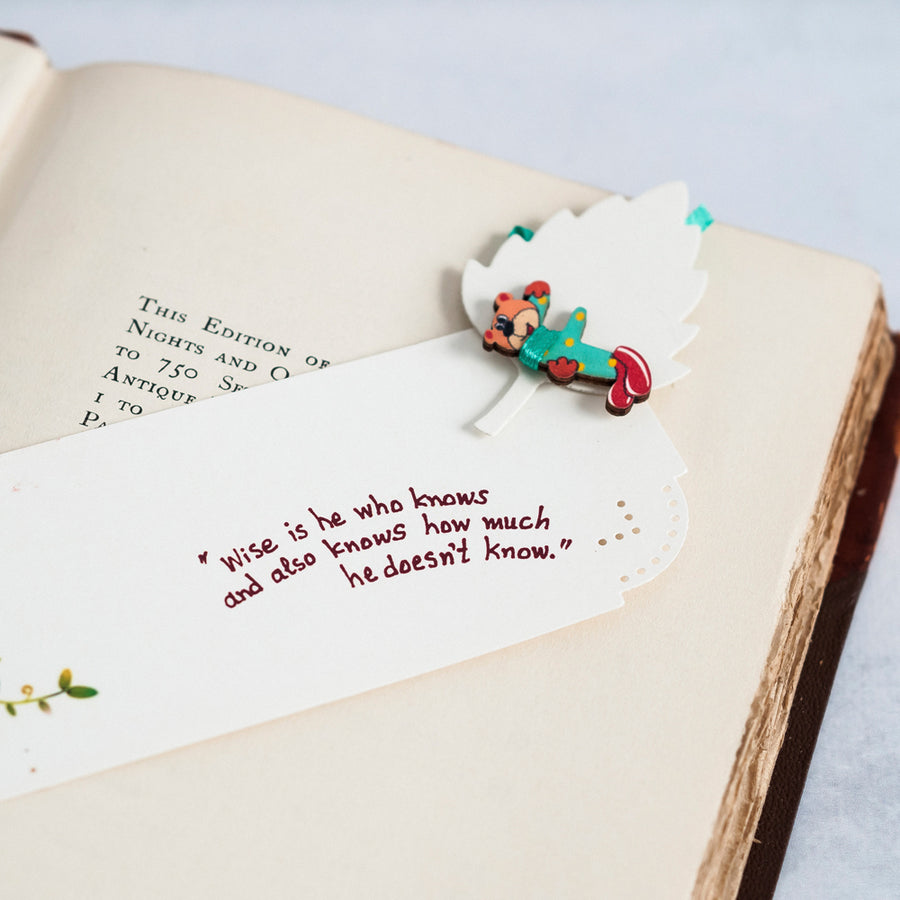 This Edition of
Nights and O
to 750 Se
Antique
1 to
Pa
"Wise is he who knows
and also knows how much
he doesn't know."